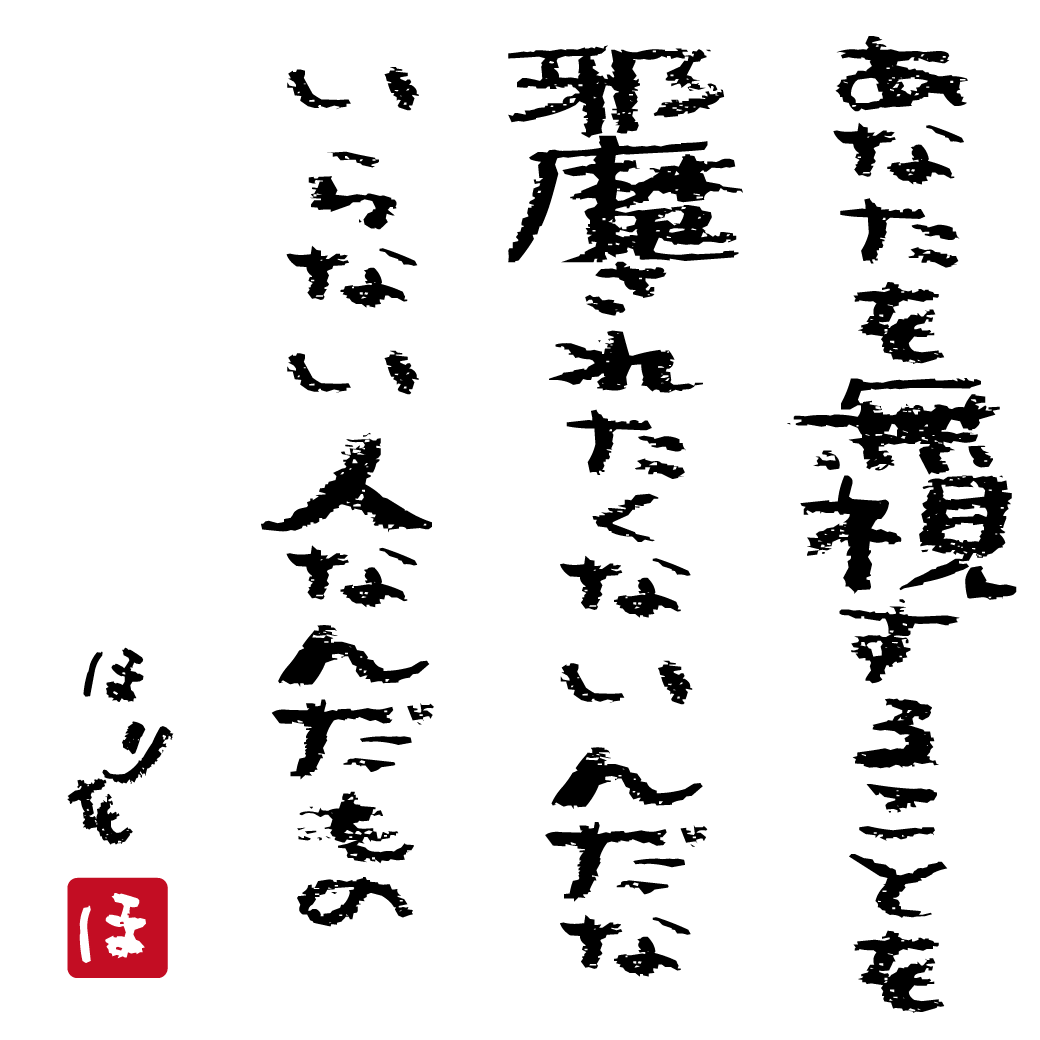 あなたを無視することを
邪魔されたくないんだな
いらない人なんだもの
ほりを
ほ